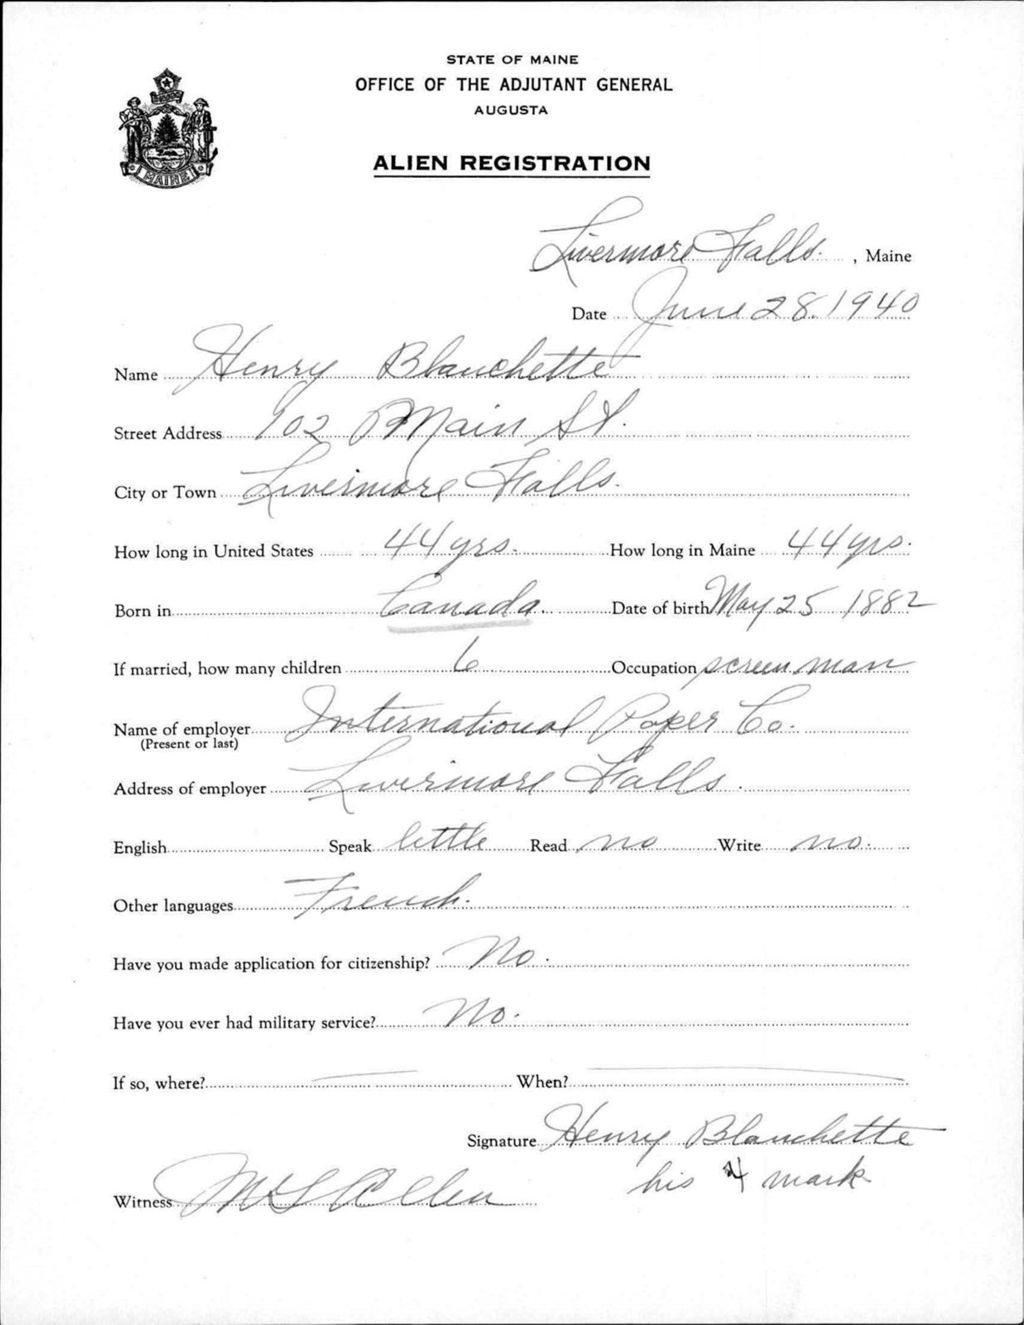 STATE OF MAINE
OFFICE OF THE ADJUTANT GENERAL
AUGUSTA
MAINE
ALIEN REGISTRATION
Livermore Falls. , Maine
Date June 28, 1940
Name Henry Blanchette
Street Address 102 Main St.
City or Town Livermore Falls.
How long in United States 44 yrs. How long in Maine 44 yrs.
Born in Canada Date of birth May 25 1882
If married, how many children 6 Occupation screen man
Name of employer International Paper Co.
(Present or last)
Address of employer Livermore Falls.
English Speak little Read no Write no.
Other languages French.
Have you made application for citizenship? No.
Have you ever had military service? No.
If so, where? — When? —
Signature Henry Blanchette
his X mark
Witness